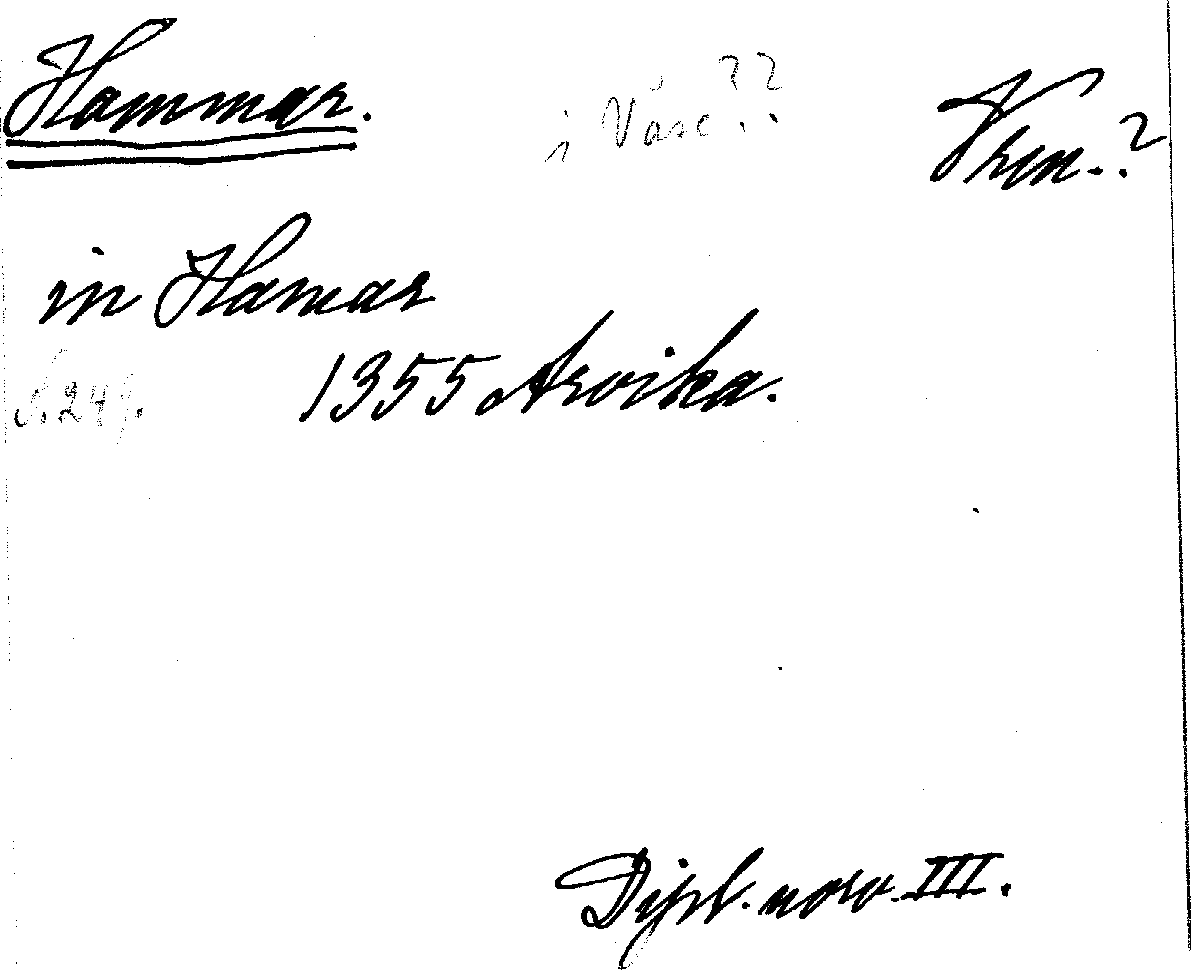 Hammar. i Väse?? Vrm.?
in Hamar
S. 249. 1355 Arvika.
Dipl. norv. III.